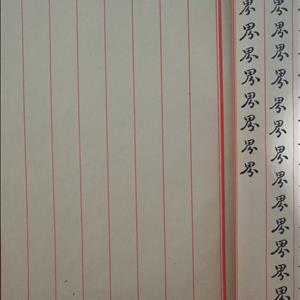 界界界界界界界界界界界界界
界界界界界界界界